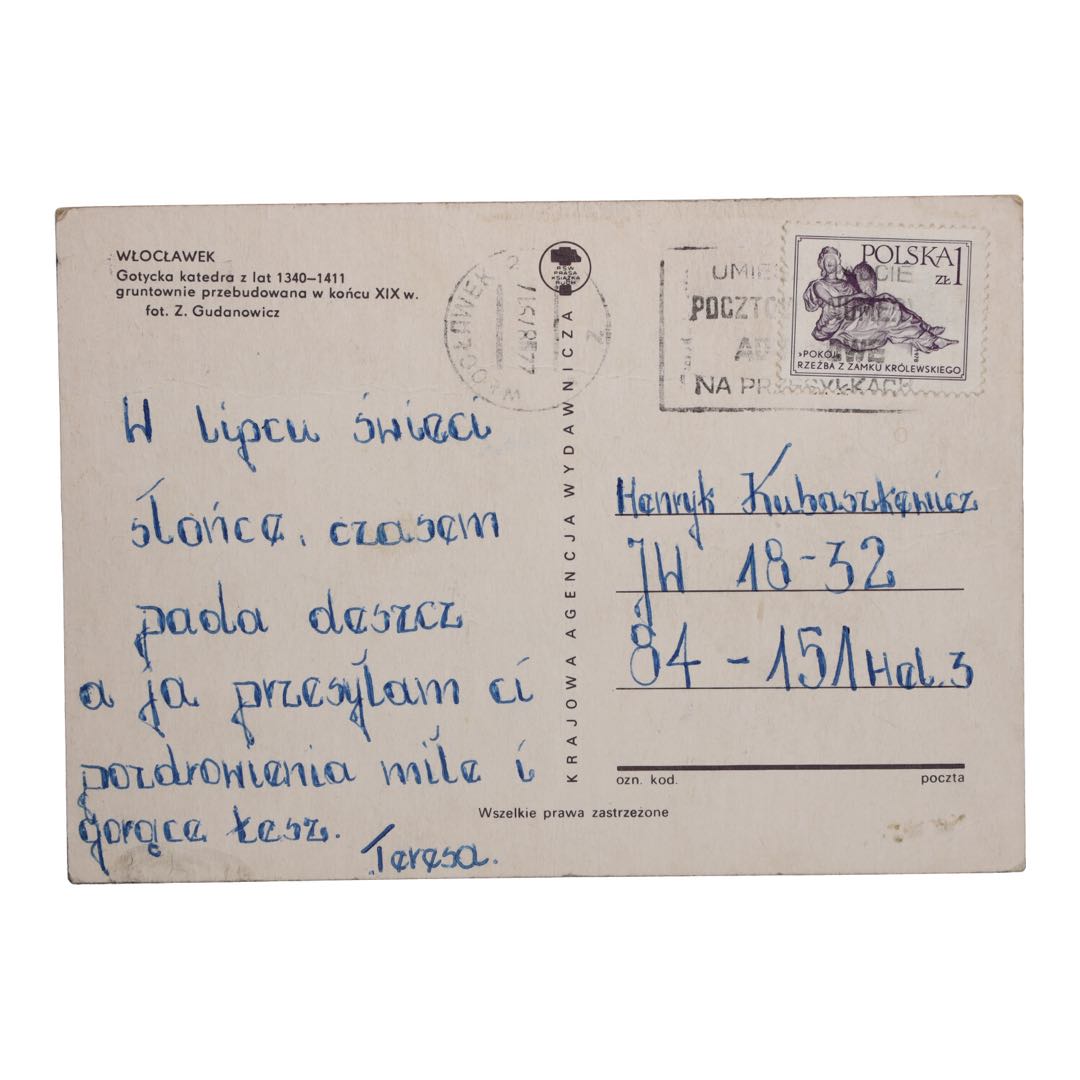 WŁOCŁAWEK
Gotycka katedra z lat 1340–1411
gruntownie przebudowana w końcu XIX w.
fot. Z. Gudanowicz
W lipcu świeci
słońce, czasem
pada deszcz
a ja przesyłam ci
pozdrowienia miłe i
gorące też.
Teresa.
KRAJOWA AGENCJA WYDAWNICZA
RSW
PRASA
KSIĄŻKA
RUCH
WŁOCŁAWEK 2
NA PRZESYŁKACH
POLSKA 1
ZŁ
»POKÓJ«
RZEŹBA Z ZAMKU KRÓLEWSKIEGO
Henryk Kubaszkewicz
JW 18-32
84-151 Hel. 3
ozn. kod. poczta
Wszelkie prawa zastrzeżone